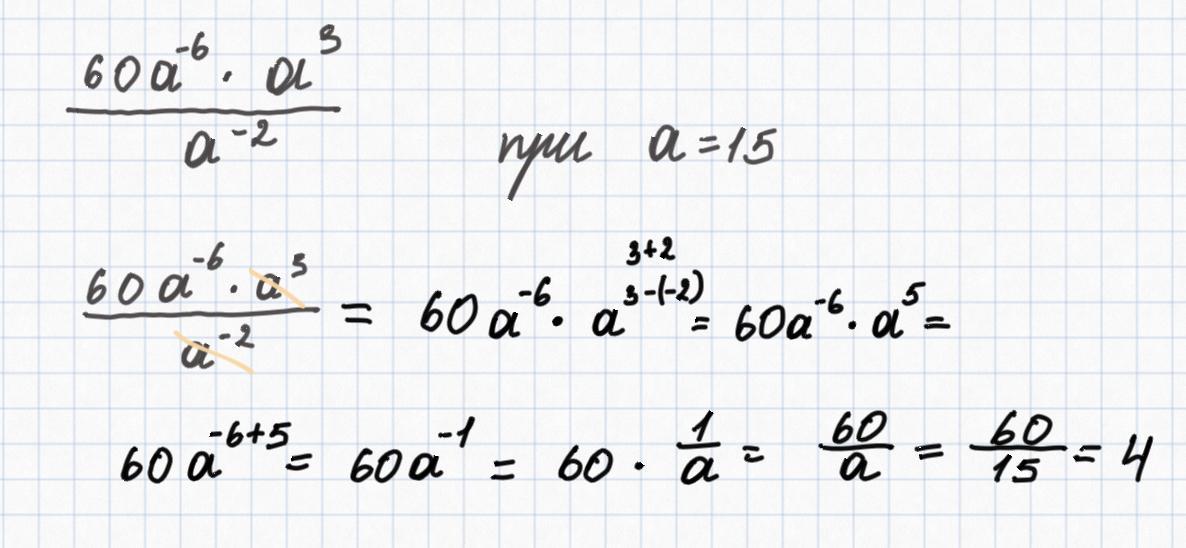 60a⁻⁶ · a³
a⁻² при a = 15
60a⁻⁶ · a³ / a⁻² = 60a⁻⁶ · a³⁻⁽⁻²⁾ = 60a⁻⁶ · a⁵ =
3+2
60a⁻⁶⁺⁵ = 60a⁻¹ = 60 · 1/a = 60/a = 60/15 = 4